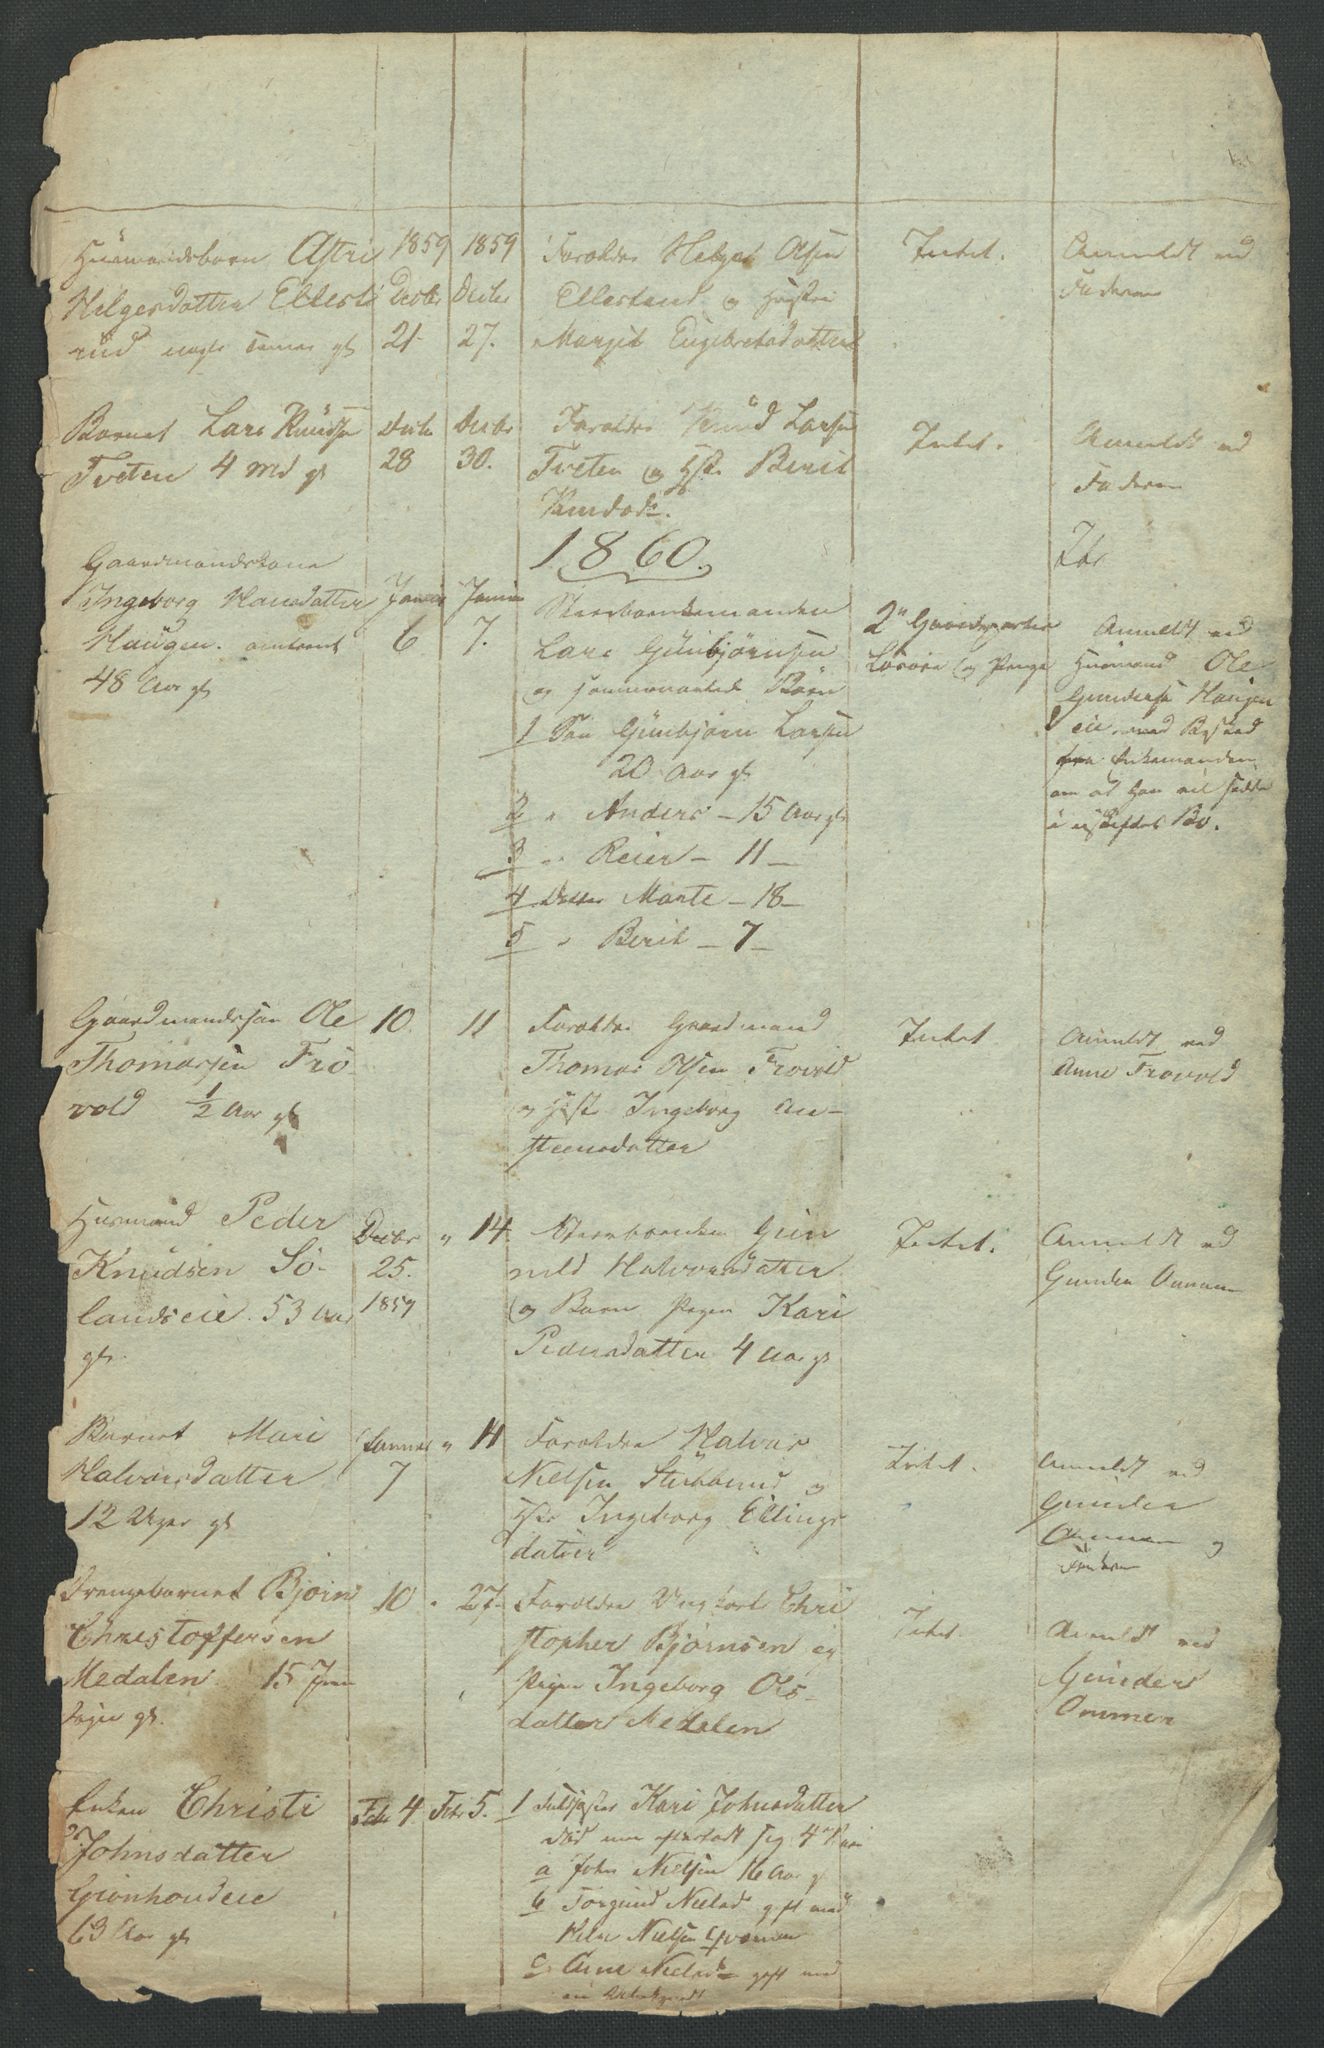 Huusmandsbarn Astri
Helgesdatter Ellestü
rud nogle Timer gl
1859
Decbr
21
1859
Decbr
27.
Forældre Helge Olsen
Ellestrud og Hustru
Margit Engebretsdatter
Intet.
Anmeldt ved
Faderen
Barnet Lars Knüdsen
Tveten 4 Md gl
Decbr
28
Decbr
30.
Forældre Knüd Larsen
Tveten og Hstr Berit
Knudsd.
Intet.
Anmeldt ved
Faderen
1860.
Gaardmandskone
Ingeborg Hansdatter
Haügen. omtrent
48 Aar gl
Januar
6
Januar
7.
Lars Günbjørnsen
og sammenavlede Børn
1 Søn Günbjørn Larsen
20 Aar gl
2 " Anders - 15 Aar gl
3 " Reier - 11 -
4 Datter Marte - 18 -
5 " Berit - 7 -
2 Gaardparter
Løsøre og Penge
Anmeldt ved
Husmand Ole
Gundersen Haugen
eie med Besked
fra Enkemanden
om at han vil sidde
i uskiftet Bo.
Gaardmandssøn Ole
Thomassen Fro
vold 1/2 Aar gl
10.
11
Forældre Gaardmand
Thomas Olsen Frovold
og Hstr Ingeborg An-
steensdatter
Intet
Anmeldt ved
Anne Frovold
Husmand Peder
Knudsen Sö-
landseie. 53 Aar
gl.
Decbr
25.
1859
" 14
Gün
nild Halvorsdatter
og Barn Pigen Kari
Pedersdatter 4 Aar gl
Intet.
Anmeldt ved
Gunder Ommen
Barnet Mari
Halvorsdatter
12 Uger gl
Januar
7
" 14
Forældre Halvor
Nielsen Stübberud og
Hstr Ingeborg Ellings
datter
Intet.
Anmeldt ved
Gunder
Ommen og
Faderen
Drengebarnet Bjørn
Christoffersen
Medalen 15
Dage gl.
10
" 27.
Forældre Ungkarl Chri
stopher Bjørnsen og
Pigen Ingeborg Ols-
datter Medalen
Intet
Anmeldt ved
Gunder
Ommen
Enken Christi
Johnsdatter
Grønhoudeie
63 Aar gl
Febr 4
Febr 5.
1 Fuldsøster Kari Johnsdatter
død men efterladt sig 4 Børn
a John Nielsen 16 Aar gl
b Torgund Nielsd gift med
Nielsen
c. Anne Nielsd gift med
en Ubekjendt